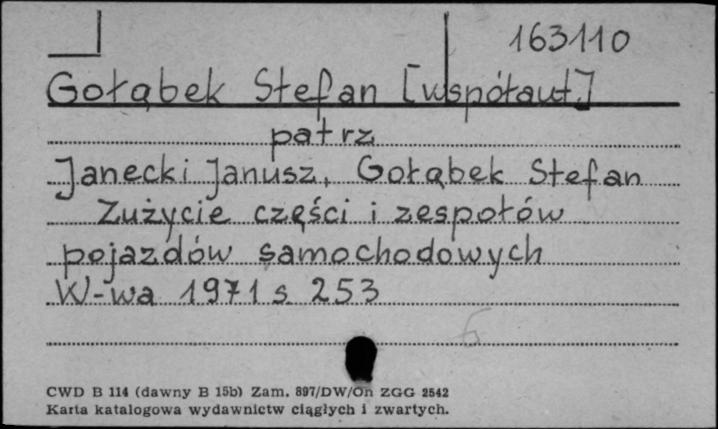 163110
Gołąbek Stefan [współaut.]
patrz
Janecki Janusz, Gołąbek Stefan
Zużycie części i zespołów
pojazdów samochodowych
W-wa 1971 s. 253
6
CWD B 114 (dawny B 15b) Zam. 897/DW/On ZGG 2542
Karta katalogowa wydawnictw ciągłych i zwartych.